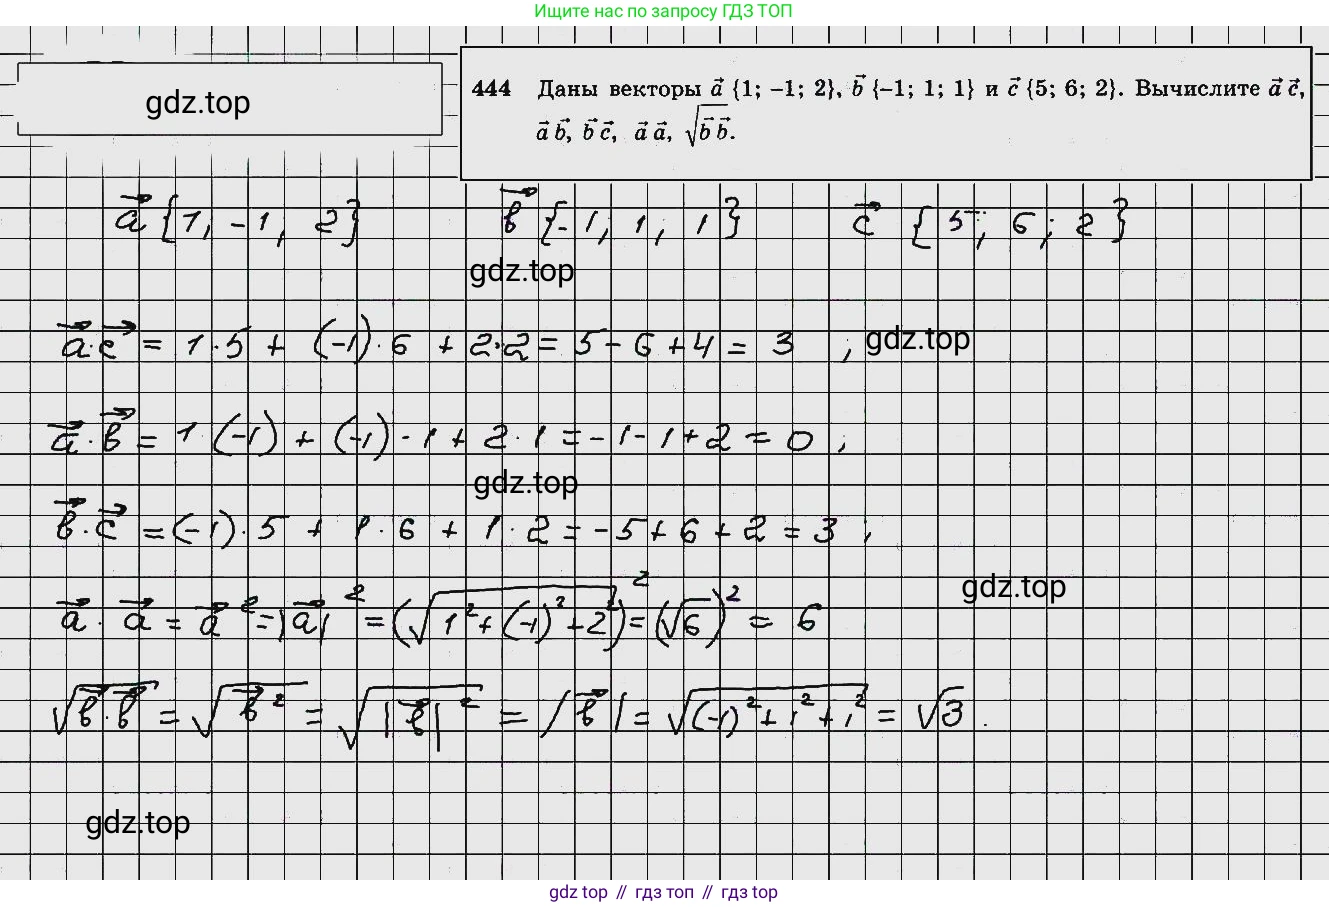 Ищите нас по запросу ГДЗ ТОП
gdz.top
444 Даны векторы a⃗ {1; −1; 2}, b⃗ {−1; 1; 1} и c⃗ {5; 6; 2}. Вычислите a⃗ c⃗,
a⃗ b⃗, b⃗ c⃗, a⃗ a⃗, √(b⃗ b⃗).
a⃗ {1, −1, 2} b⃗ {−1, 1, 1} c⃗ {5; 6; 2}
gdz.top
a⃗·c⃗ = 1·5 + (−1)·6 + 2·2 = 5 − 6 + 4 = 3 ; gdz.top
a⃗·b⃗ = 1·(−1) + (−1)·1 + 2·1 = −1−1+2 = 0 ;
gdz.top
b⃗·c⃗ = (−1)·5 + 1·6 + 1·2 = −5+6+2 = 3 ;
gdz.top
a⃗·a⃗ = a⃗² = |a⃗|² = (√(1²+(−1)²+2²))² = (√6)² = 6
√(b⃗·b⃗) = √(b⃗²) = √(|b⃗|²) = |b⃗| = √((−1)²+1²+1²) = √3.
gdz.top
gdz top // гдз топ // gdz top